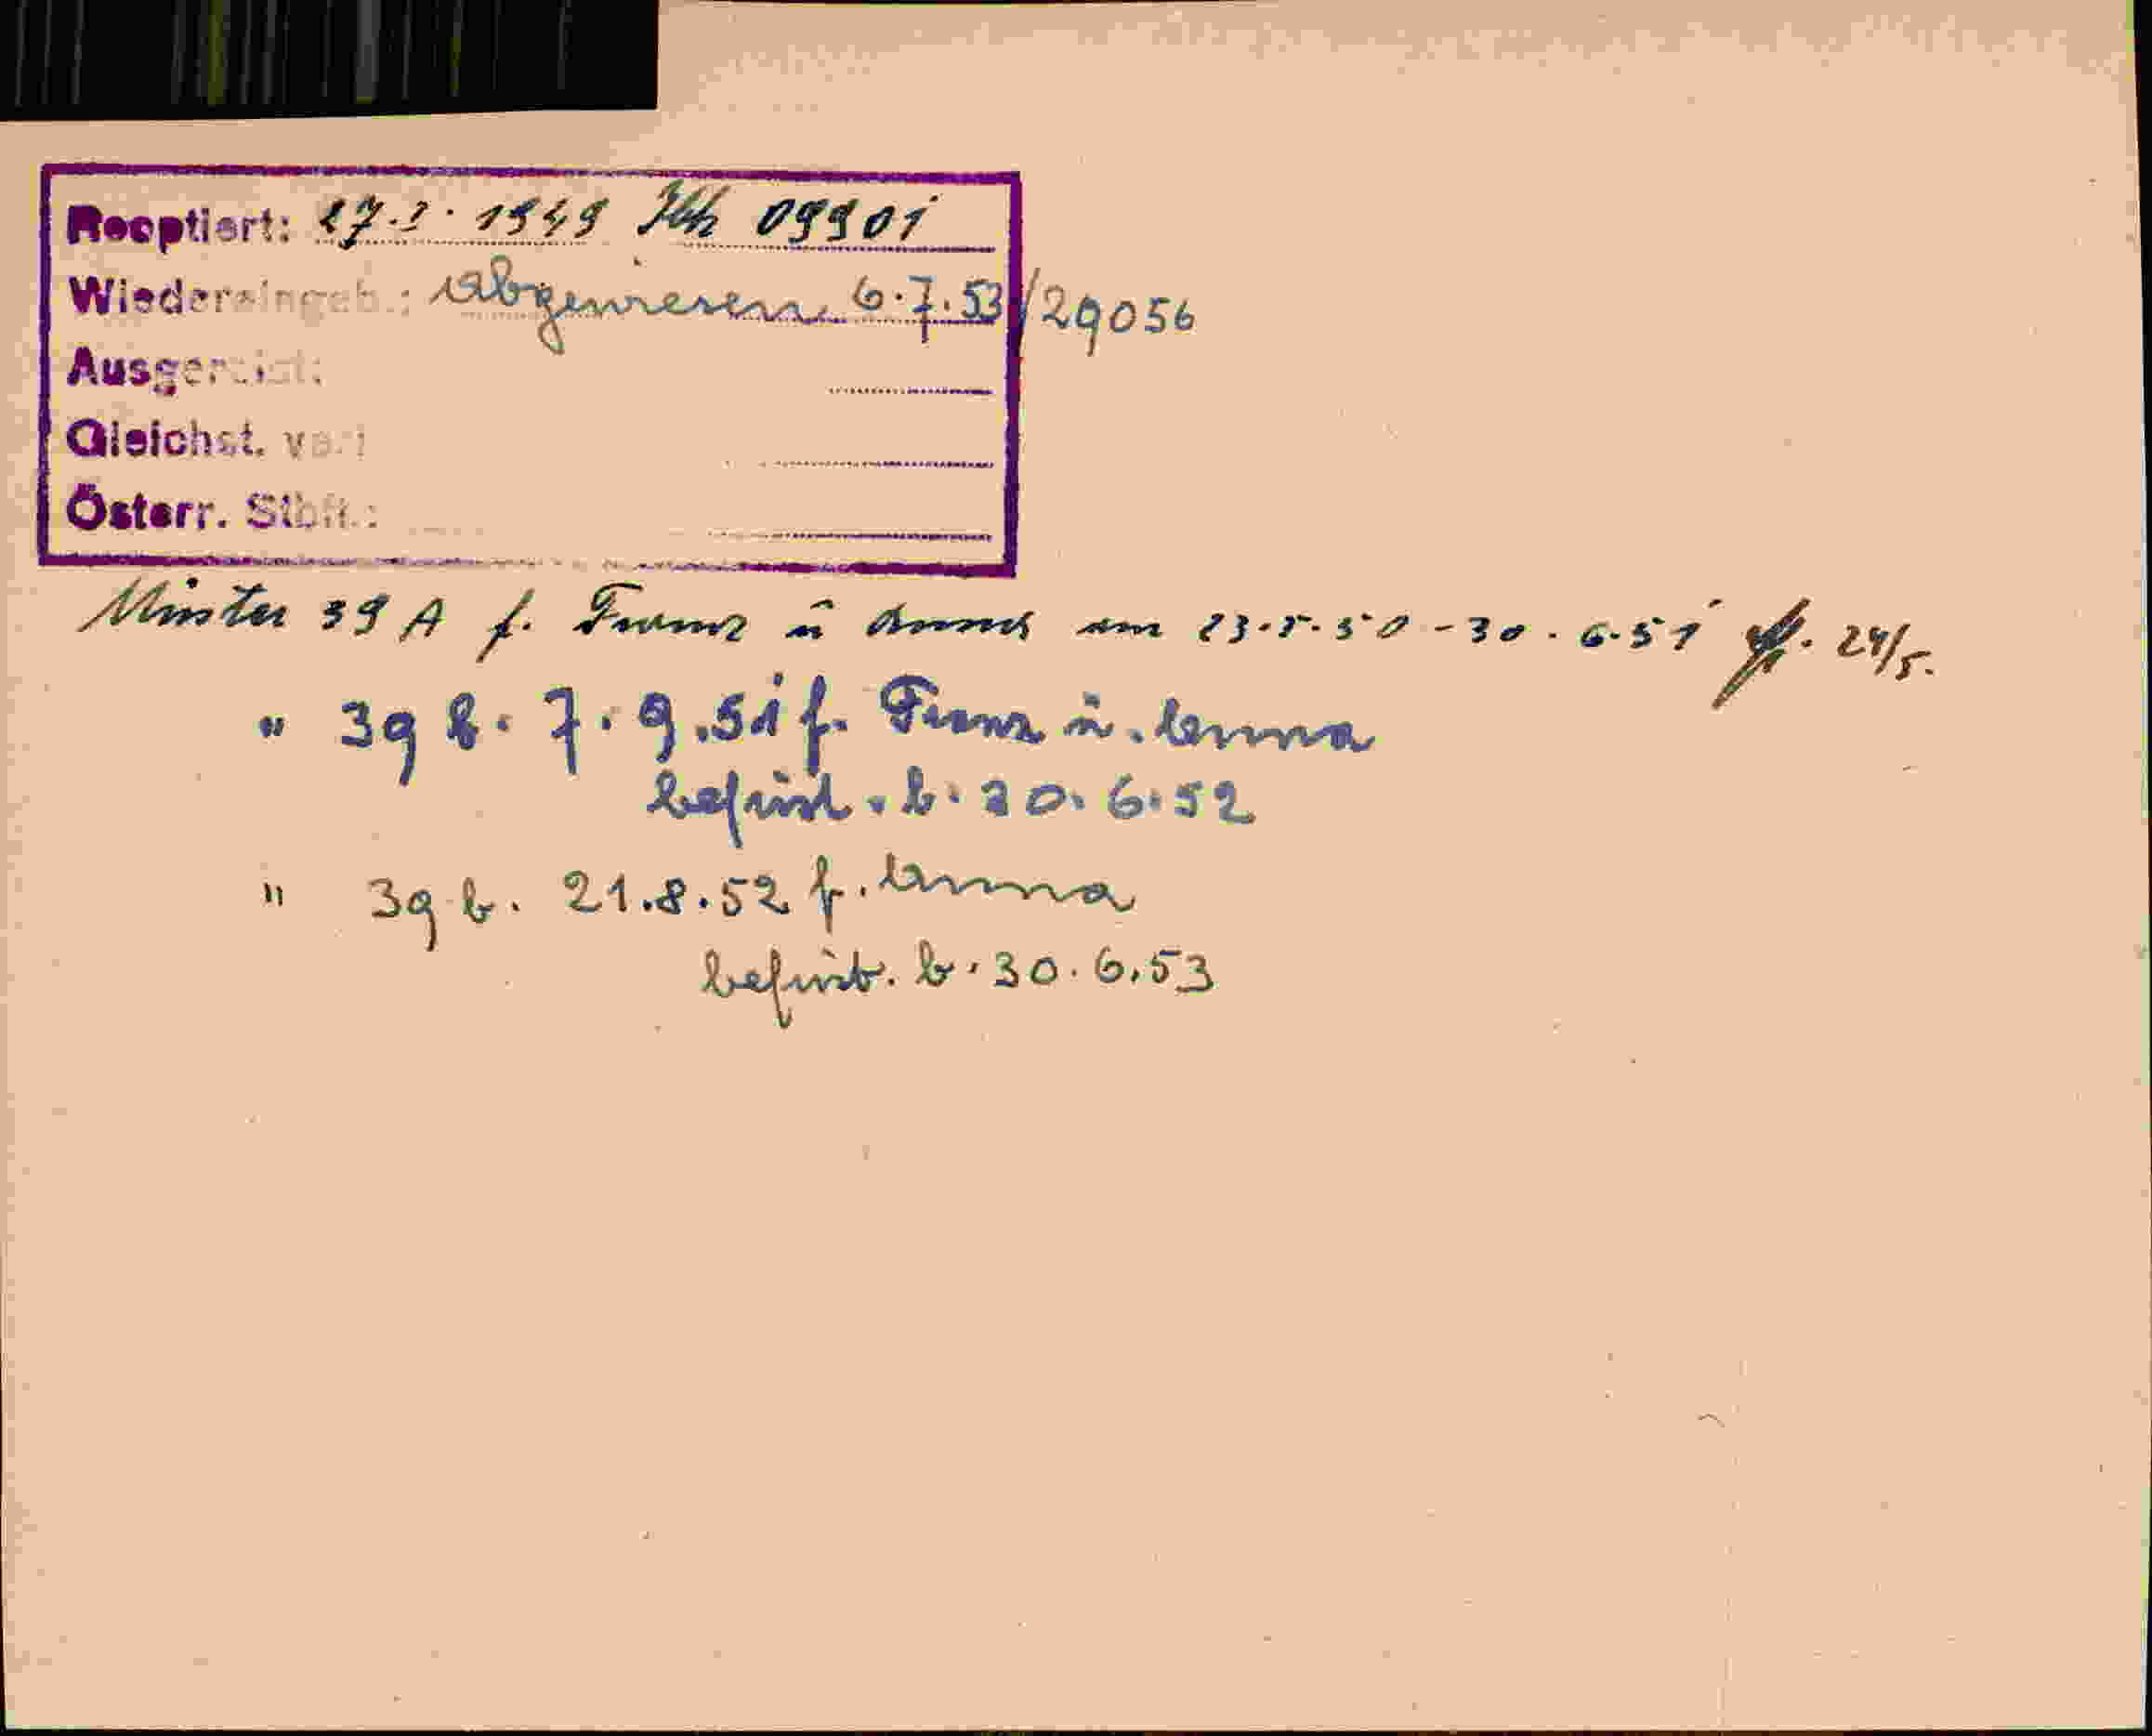 Reoptiert: 27.2.1949 09901
Wiedereingeb.: Abgewiesen 6.7.53/29056
Ausgereist:
Gleichst. v.:
Österr. Stbft.:
Muster 39 A f. Franz u Anna am 23.5.50 - 30.6.51 24/5.
" 39 b. 7.9.51 f. Franz u. Anna
befrist. b. 30.6.52
" 39 b. 21.8.52 f. Anna
befrist. b. 30.6.53